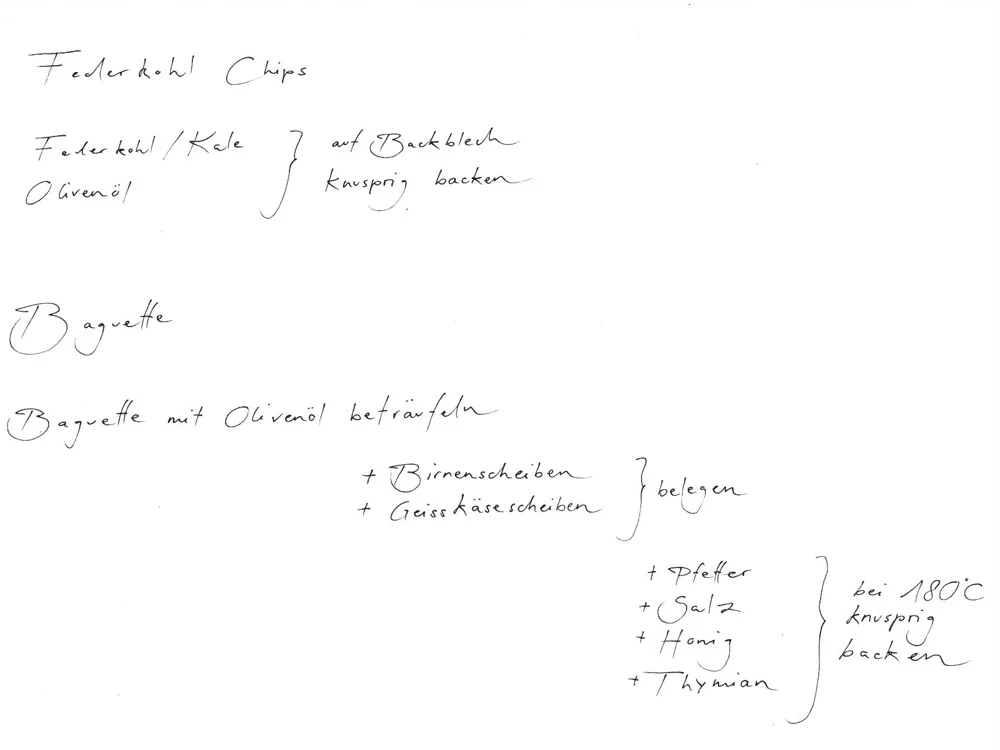 Federkohl Chips
Federkohl / Kale
Olivenöl
auf Backblech
knusprig backen
Baguette
Baguette mit Olivenöl beträufeln
+ Birnenscheiben
+ Geisskäsescheiben
belegen
+ Pfeffer
+ Salz
+ Honig
+ Thymian
bei 180°C
knusprig
backen